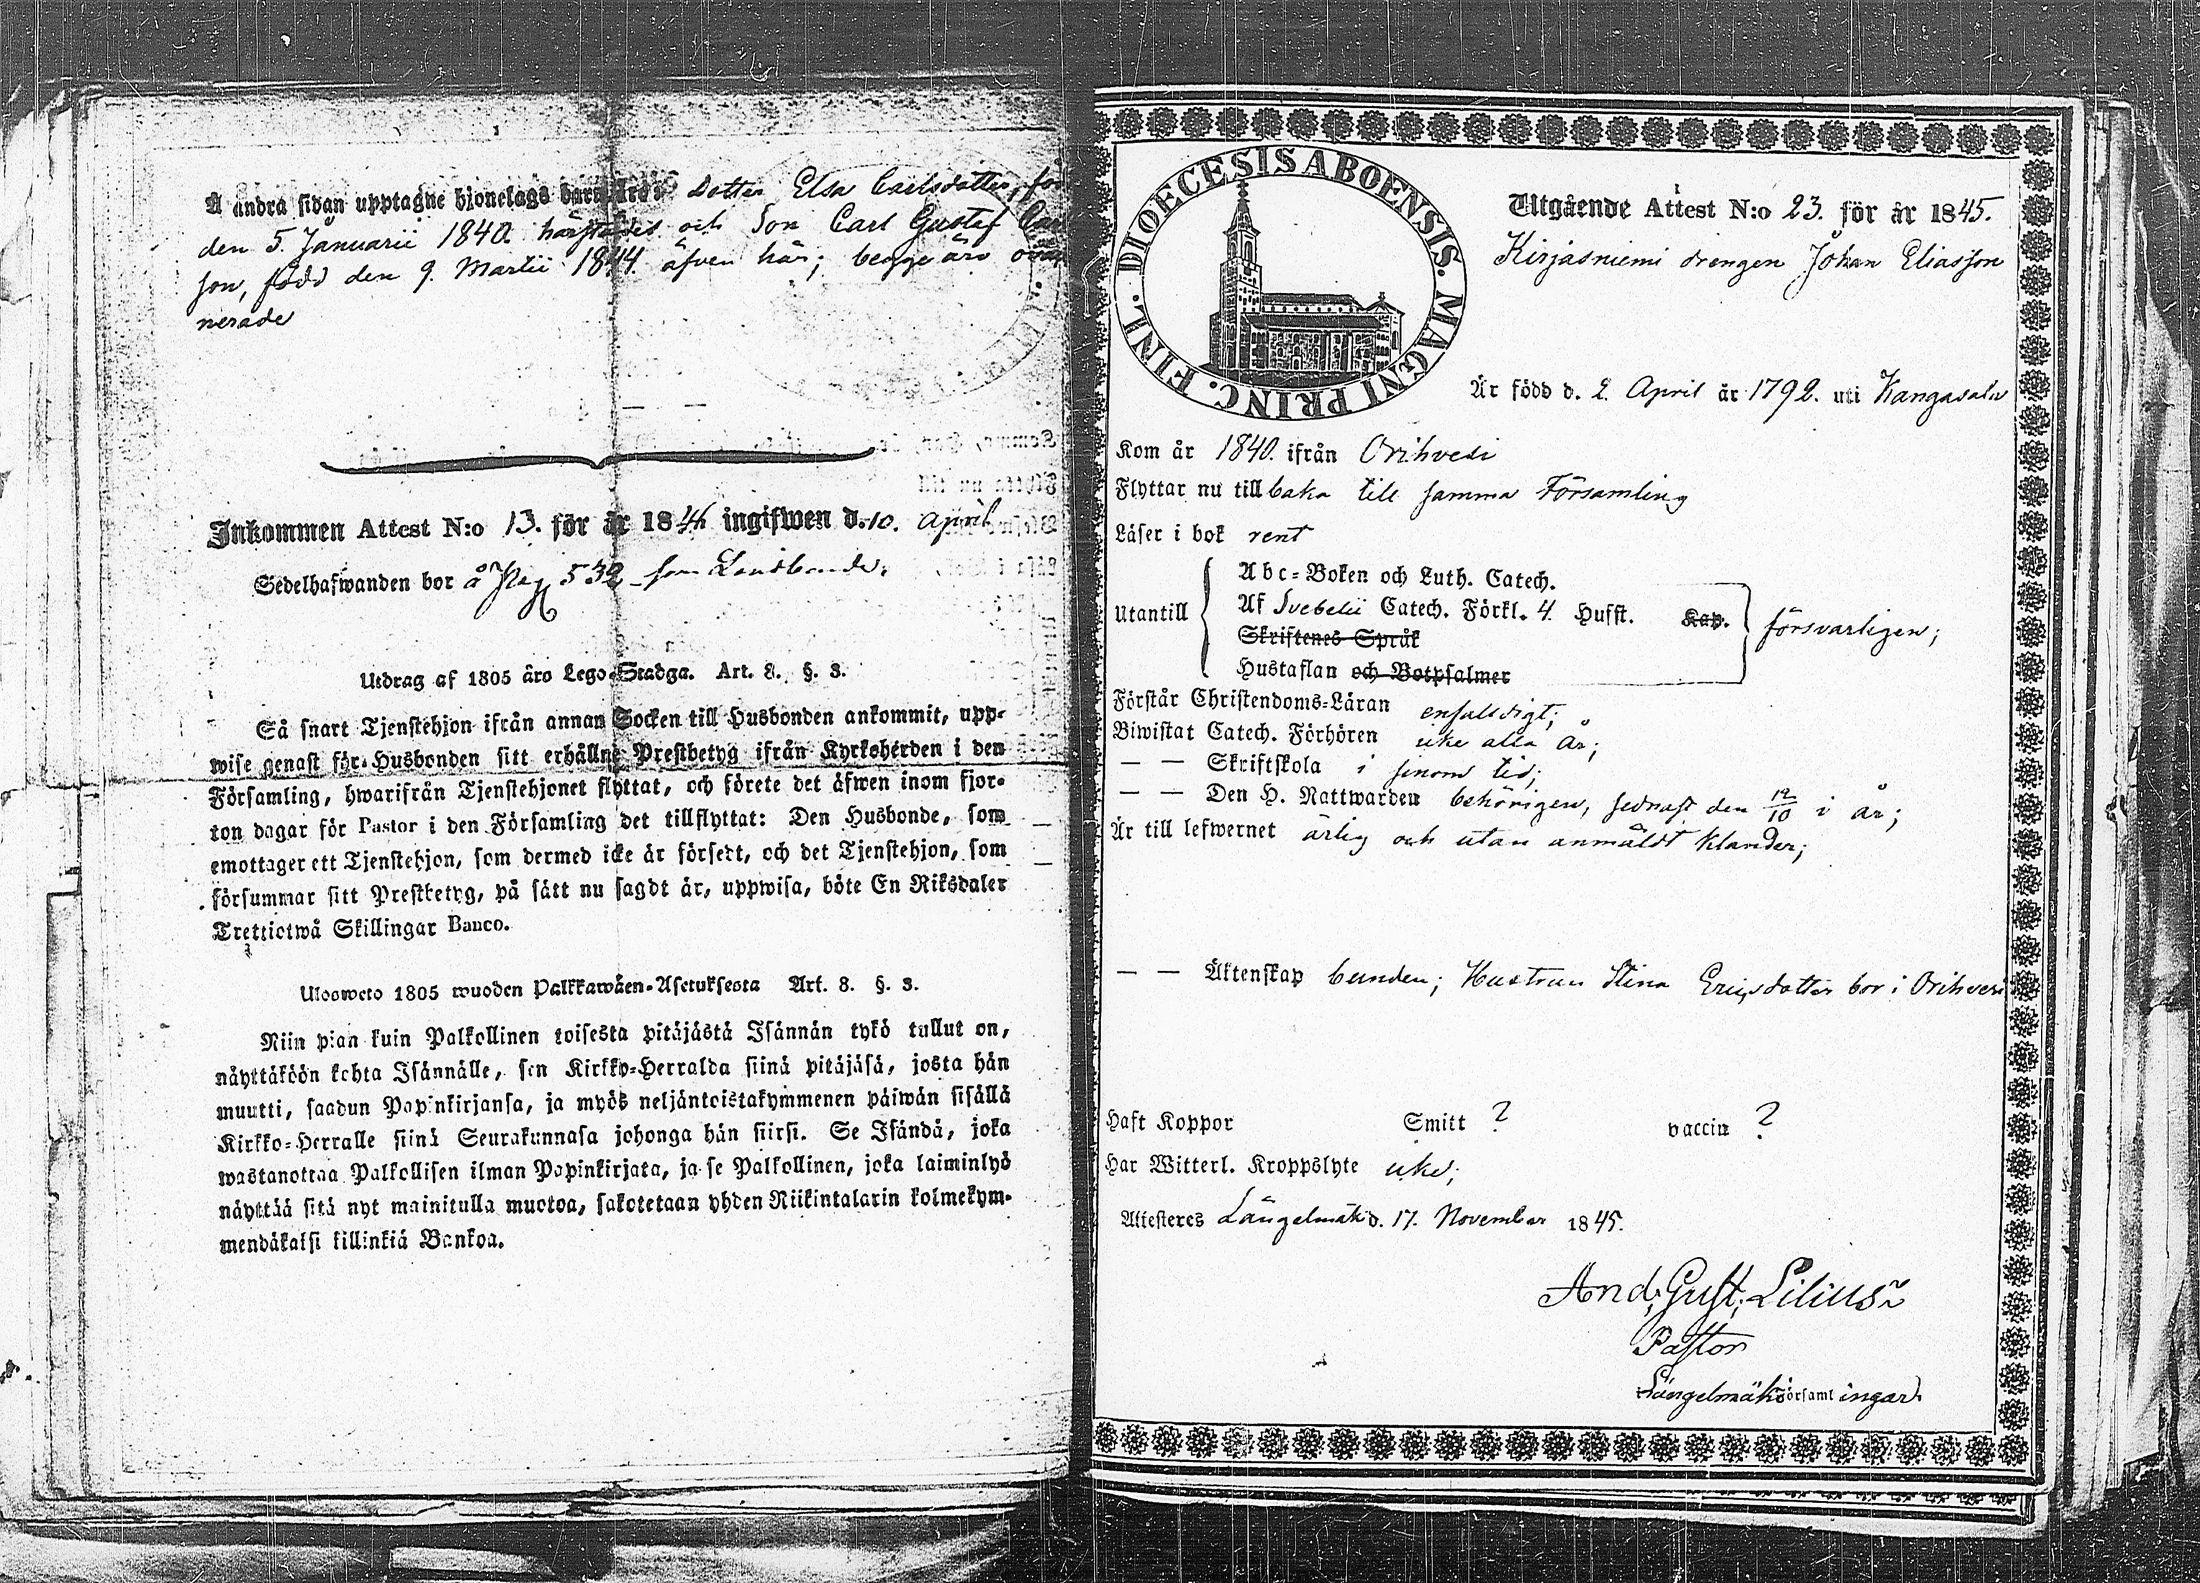 Å andra sidan upptagne hjonelags barn äro: Dotter Elsa Carlsdotter, född
den 5. Januarii 1840. härstädes och Son Carl Gustaf
son, född den 9. Martii 1844. äfven här; begge äro
nerade
Inkommen Attest N:o 13. för år 1844 ingifwen d. 10. April
Sedelhafwanden bor å Pag 532 som Landbonde.
Utdrag af 1805 års Lego-Stadga. Art. 8. §. 3.
Så snart Tjenstehjon ifrån annan Socken till Husbonden ankommit, upp-
wise genast för Husbonden sitt erhållne Prestbetyg ifrån Kyrkoherden i den
Församling, hwarifrån Tjenstehjonet flyttat, och förete det äfwen inom fjor-
ton dagar för Pastor i den Församling det tillflyttat: Den Husbonde, som
emottager ett Tjenstehjon, som dermed icke är försedt, och det Tjenstehjon, som
försummar sitt Prestbetyg, på sätt nu sagdt är, uppwisa, böte En Riksdaler
Trettiotwå Skillingar Banco.
Ulosweto 1805 wuoden Palkkawäen-Asetuksesta Art. 8. §. 3.
Niin pian kuin Palkollinen toisesta pitäjästä Isännän tykö tullut on,
näyttäköön kohta Isännälle, sen Kirkko-Herralda siinä pitäjäsä, josta hän
muutti, saadun Papinkirjansa, ja myös neljäntoistakymmenen päiwän sisällä
Kirkko-Herralle siinä Seurakunnasa johonga hän siirsi. Se Isändä, joka
wastanottaa Palkollisen ilman Papinkirjata, ja se Palkollinen, joka laiminlyö
näyttää sitä nyt mainitulla muotoa, sakotetaan yhden Riikintalarin kolmekym-
mendäkaksi killinkiä Bankoa.
DIOECESIS ABOENSIS. MAGNI PRINC. FINL.
Utgående Attest N:o 23. för år 1845.
Kirjasniemi drengen Johan Eliasson
Är född d. 2. April år 1792. uti Kangasala
Kom år 1840. ifrån Orihvesi
Flyttar nu tillbaka till samma Församling
Läser i bok rent
Utantill
Abc-Boken och Luth. Catech.
Af Svebelii Catech. Förkl. 4. Hufst. Kap.
Skriftenes Språk
Hustaflan och Botpsalmer
försvarligen;
Förstår Christendoms-Läran enfaldigt;
Biwistat Catech. Förhören icke alla år;
— — Skriftskola i sinom tid;
— — Den H. Nattwarden behörigen, sednast den 12/10 i år;
Är till lefwernet ärlig och utan anmäldt klander;
— — Äktenskap bunden; Hustrun Stina Ericsdotter bor i Orihvesi
Haft Koppor Smitt ? vaccin ?
Har Witterl. Kroppslyte icke;
Attesteres Längelmäki d. 17. November 1845.
And. Gust. Lilius
Pastor
Längelmäki församlingar.